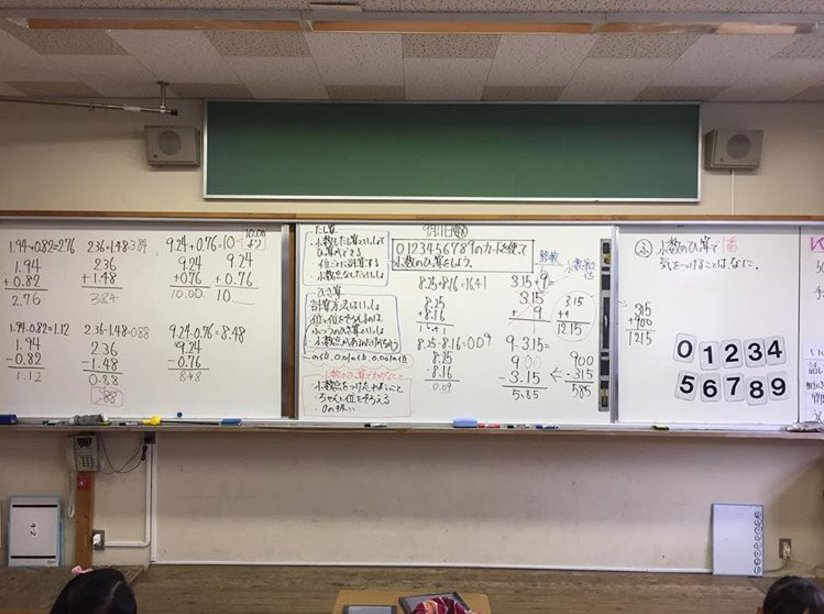 1.94+0.82=2.76
1.94
+0.82
2.76
2.36+1.48=3.84
2.36
+1.48
3.84
9.24+0.76=10
10.00
より
9.24
+0.76
10.00
9.24
+0.76
10
1.94-0.82=1.12
1.94
-0.82
1.12
2.36-1.48=0.88
2.36
-1.48
0.88
.88
9.24-0.76=8.48
9.24
-0.76
8.48
たし算
・小数もたし算といっしょで
ひっ算ができる
ひき算
計算方法はいっしょ
位と位をそろえるのは
ふつうのひき算といっしょ
一の位、0.1の位、0.01の位
・小数点をつけたす
・ちゃんと位をそろえる
・0の
9月11日
0123456789のカードを使って
小数のひっ算をしよう。
8.25+8.16=16.41
8.25
+8.16
16.41
8.25-8.16=0.09
8.25
-8.16
0.09
3.15+9=
3.15
+ 9
整数
小数
3.15
+9
12.15
9-3.15=
9.00
-3.15
5.85
←
900
-315
585
小数のひっ算で
気をつけることは、なに。
315
+900
1215
0 1 2 3 4
5 6 7 8 9
4-2